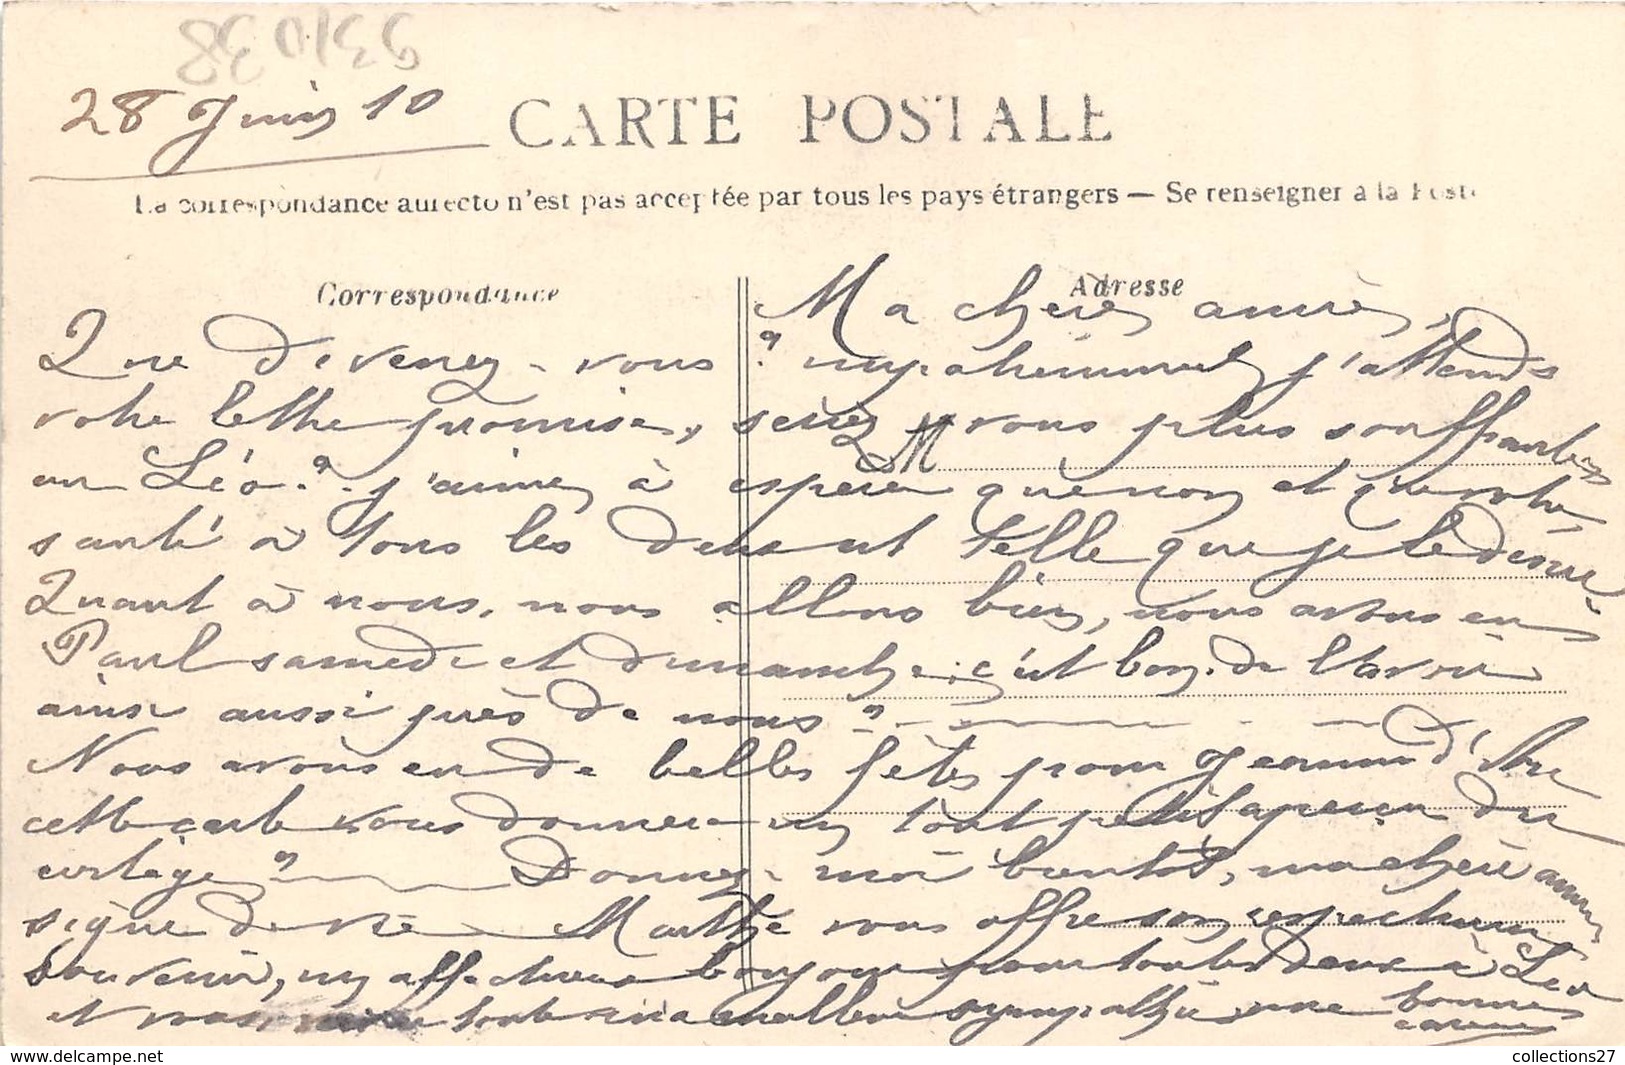 931038
28 Juin 10
CARTE POSTALE
La correspondance au recto n'est pas acceptée par tous les pays étrangers — Se renseigner à la Poste
Correspondance
Adresse
Ma chère amie,
Que devenez-vous ? j'attends
votre lettre promise, seriez vous plus souffrante
ou Léo ? j'aime à espérer que non et que votre
santé à tous les deux est telle que je le désire
Quant à nous, nous allons bien, nous avons eu
Paul samedi et dimanche ; c'est bon de l'avoir
ainsi aussi près de nous
Nous avons eu de belles fêtes pour Jeanne d'Arc
cette carte vous donnera un tout petit aperçu du
cortège Donnez-moi bientôt, ma chère amie
signe de vie Marthe vous offre son respectueux
souvenir, un affectueux bonjour pour toutes deux à Léo
et vous, toute ma meilleure sympathie, une bonne
caresse
collections27